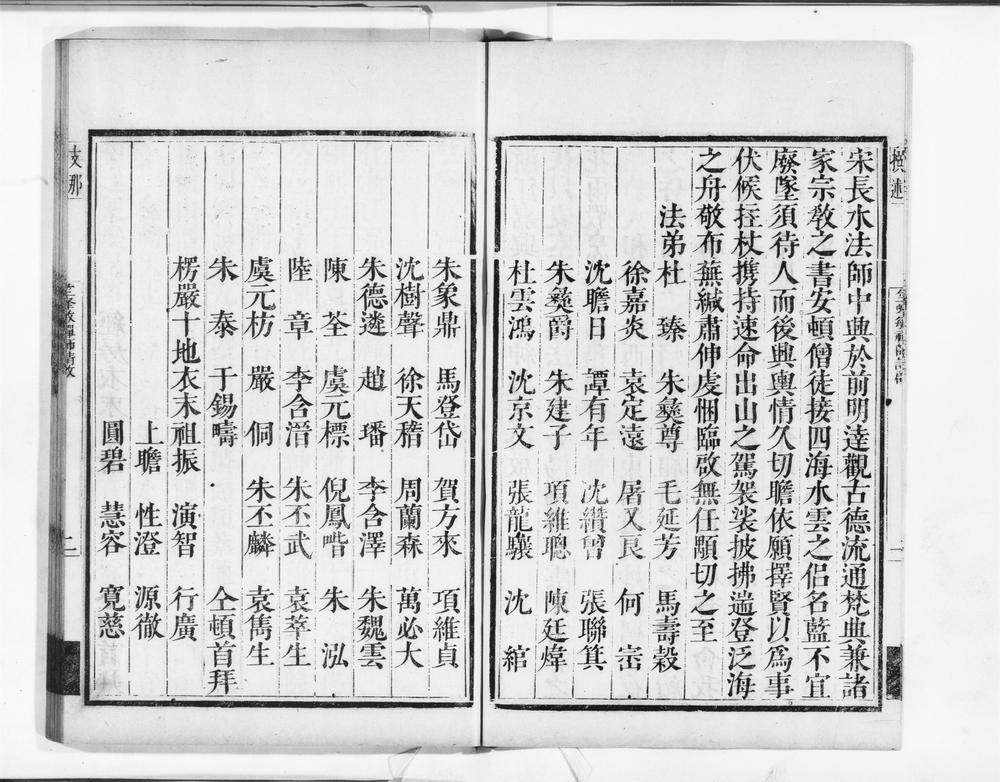 宋長水法師中興於前明達觀古德流通梵典兼諸
家宗教之書安頓僧徒接四海水雲之侶名藍不宜
廢墜須待人而後興輿情久切瞻依願擇賢以爲事
伏候拄杖携持速命出山之駕袈裟披拂遄登泛海
之舟敬布蕪緘肅伸虔悃臨啟無任顒切之至
法弟杜　臻　朱彝尊　毛延芳　馬壽穀
徐嘉炎　袁定遠　屠又良　何　宻
沈瞻日　譚有年　沈纘曾　張聯箕
朱彝爵　朱建子　項維聰　陳廷煒
杜雲鴻　沈京文　張龍驤　沈　綰
朱象鼎　馬登岱　賀方來　項維貞
沈樹聲　徐天穡　周蘭森　萬必大
朱德遴　趙　璠　李含澤　朱魏雲
陳　荃　虞元標　倪鳳喈　朱　泓
陸　章　李含溍　朱丕武　袁莘生
虞元枋　嚴　侗　朱丕麟　袁雋生
朱　泰　于錫疇　仝頓首拜
楞嚴十地衣末祖振　演智　行廣
上瞻　性澄　源徹
圓碧　慧容　寛慈
二
二